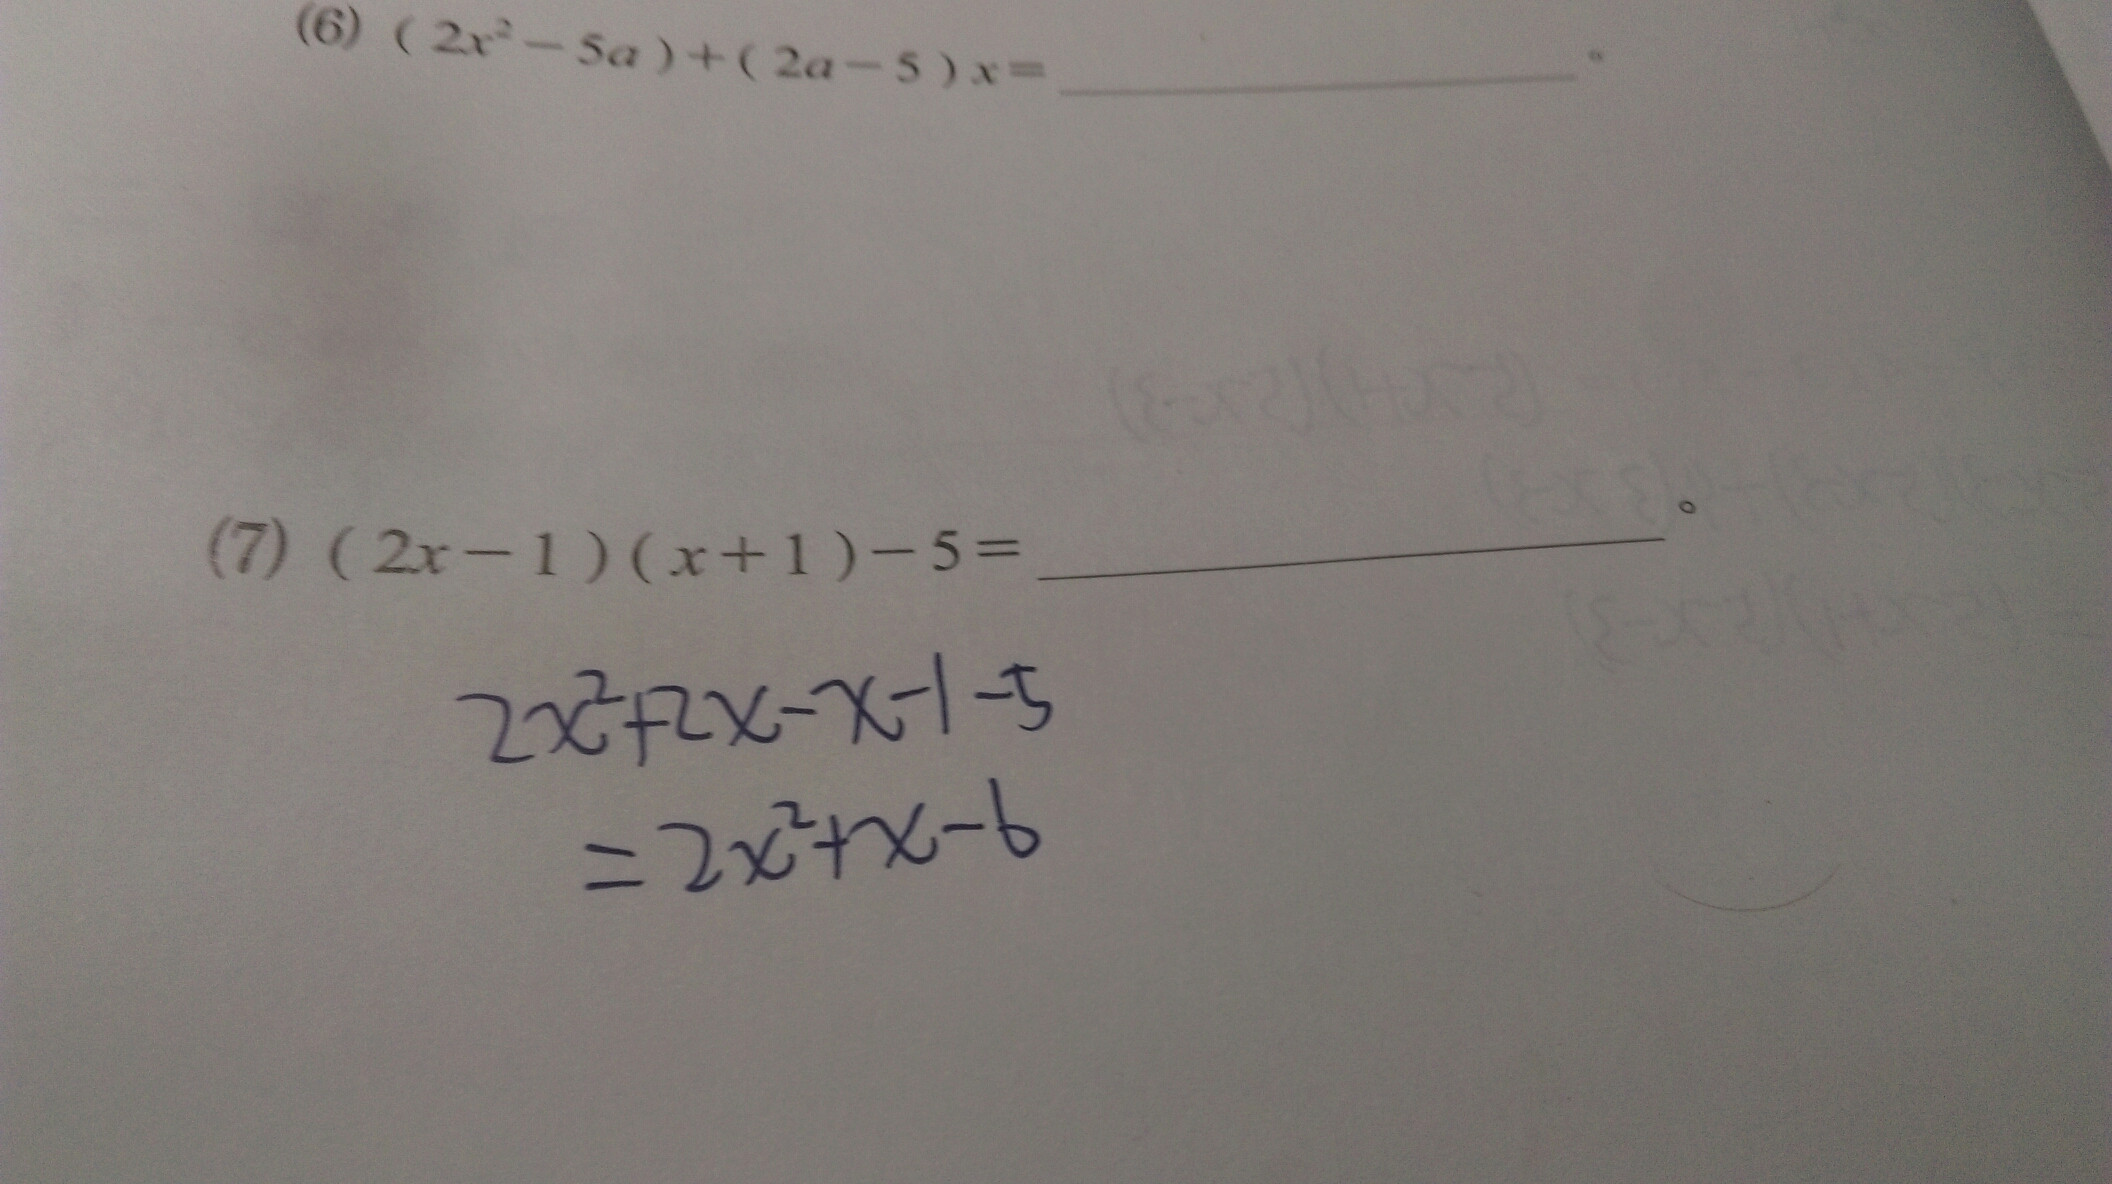 (6) ( 2x² − 5a ) + ( 2a − 5 ) x = ____________ 。
(7) ( 2x − 1 ) ( x + 1 ) − 5 = ____________ 。
2x²+2x-x-1-5
=2x²+x-6